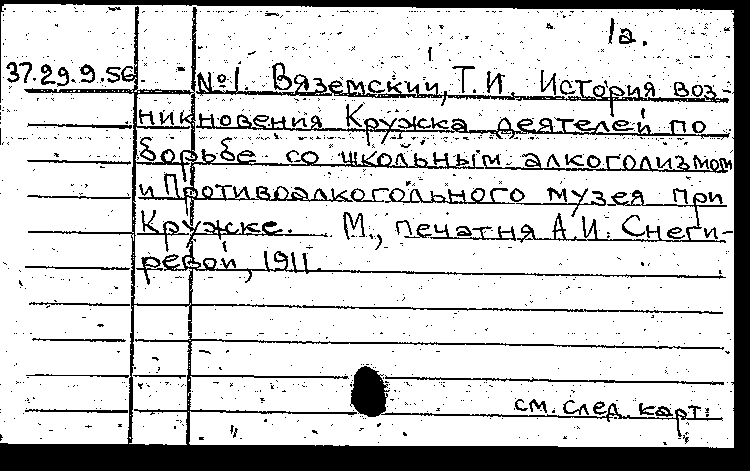 1а.
37.29.9.56. №1. Вяземский, Т.И. История воз-
никновения Кружка деятелей по
борьбе со школьным алкоголизмом
и Противоалкогольного музея при
Кружке. М., печатня А.И. Снеги-
ревой, 1911.
см. след. карт.